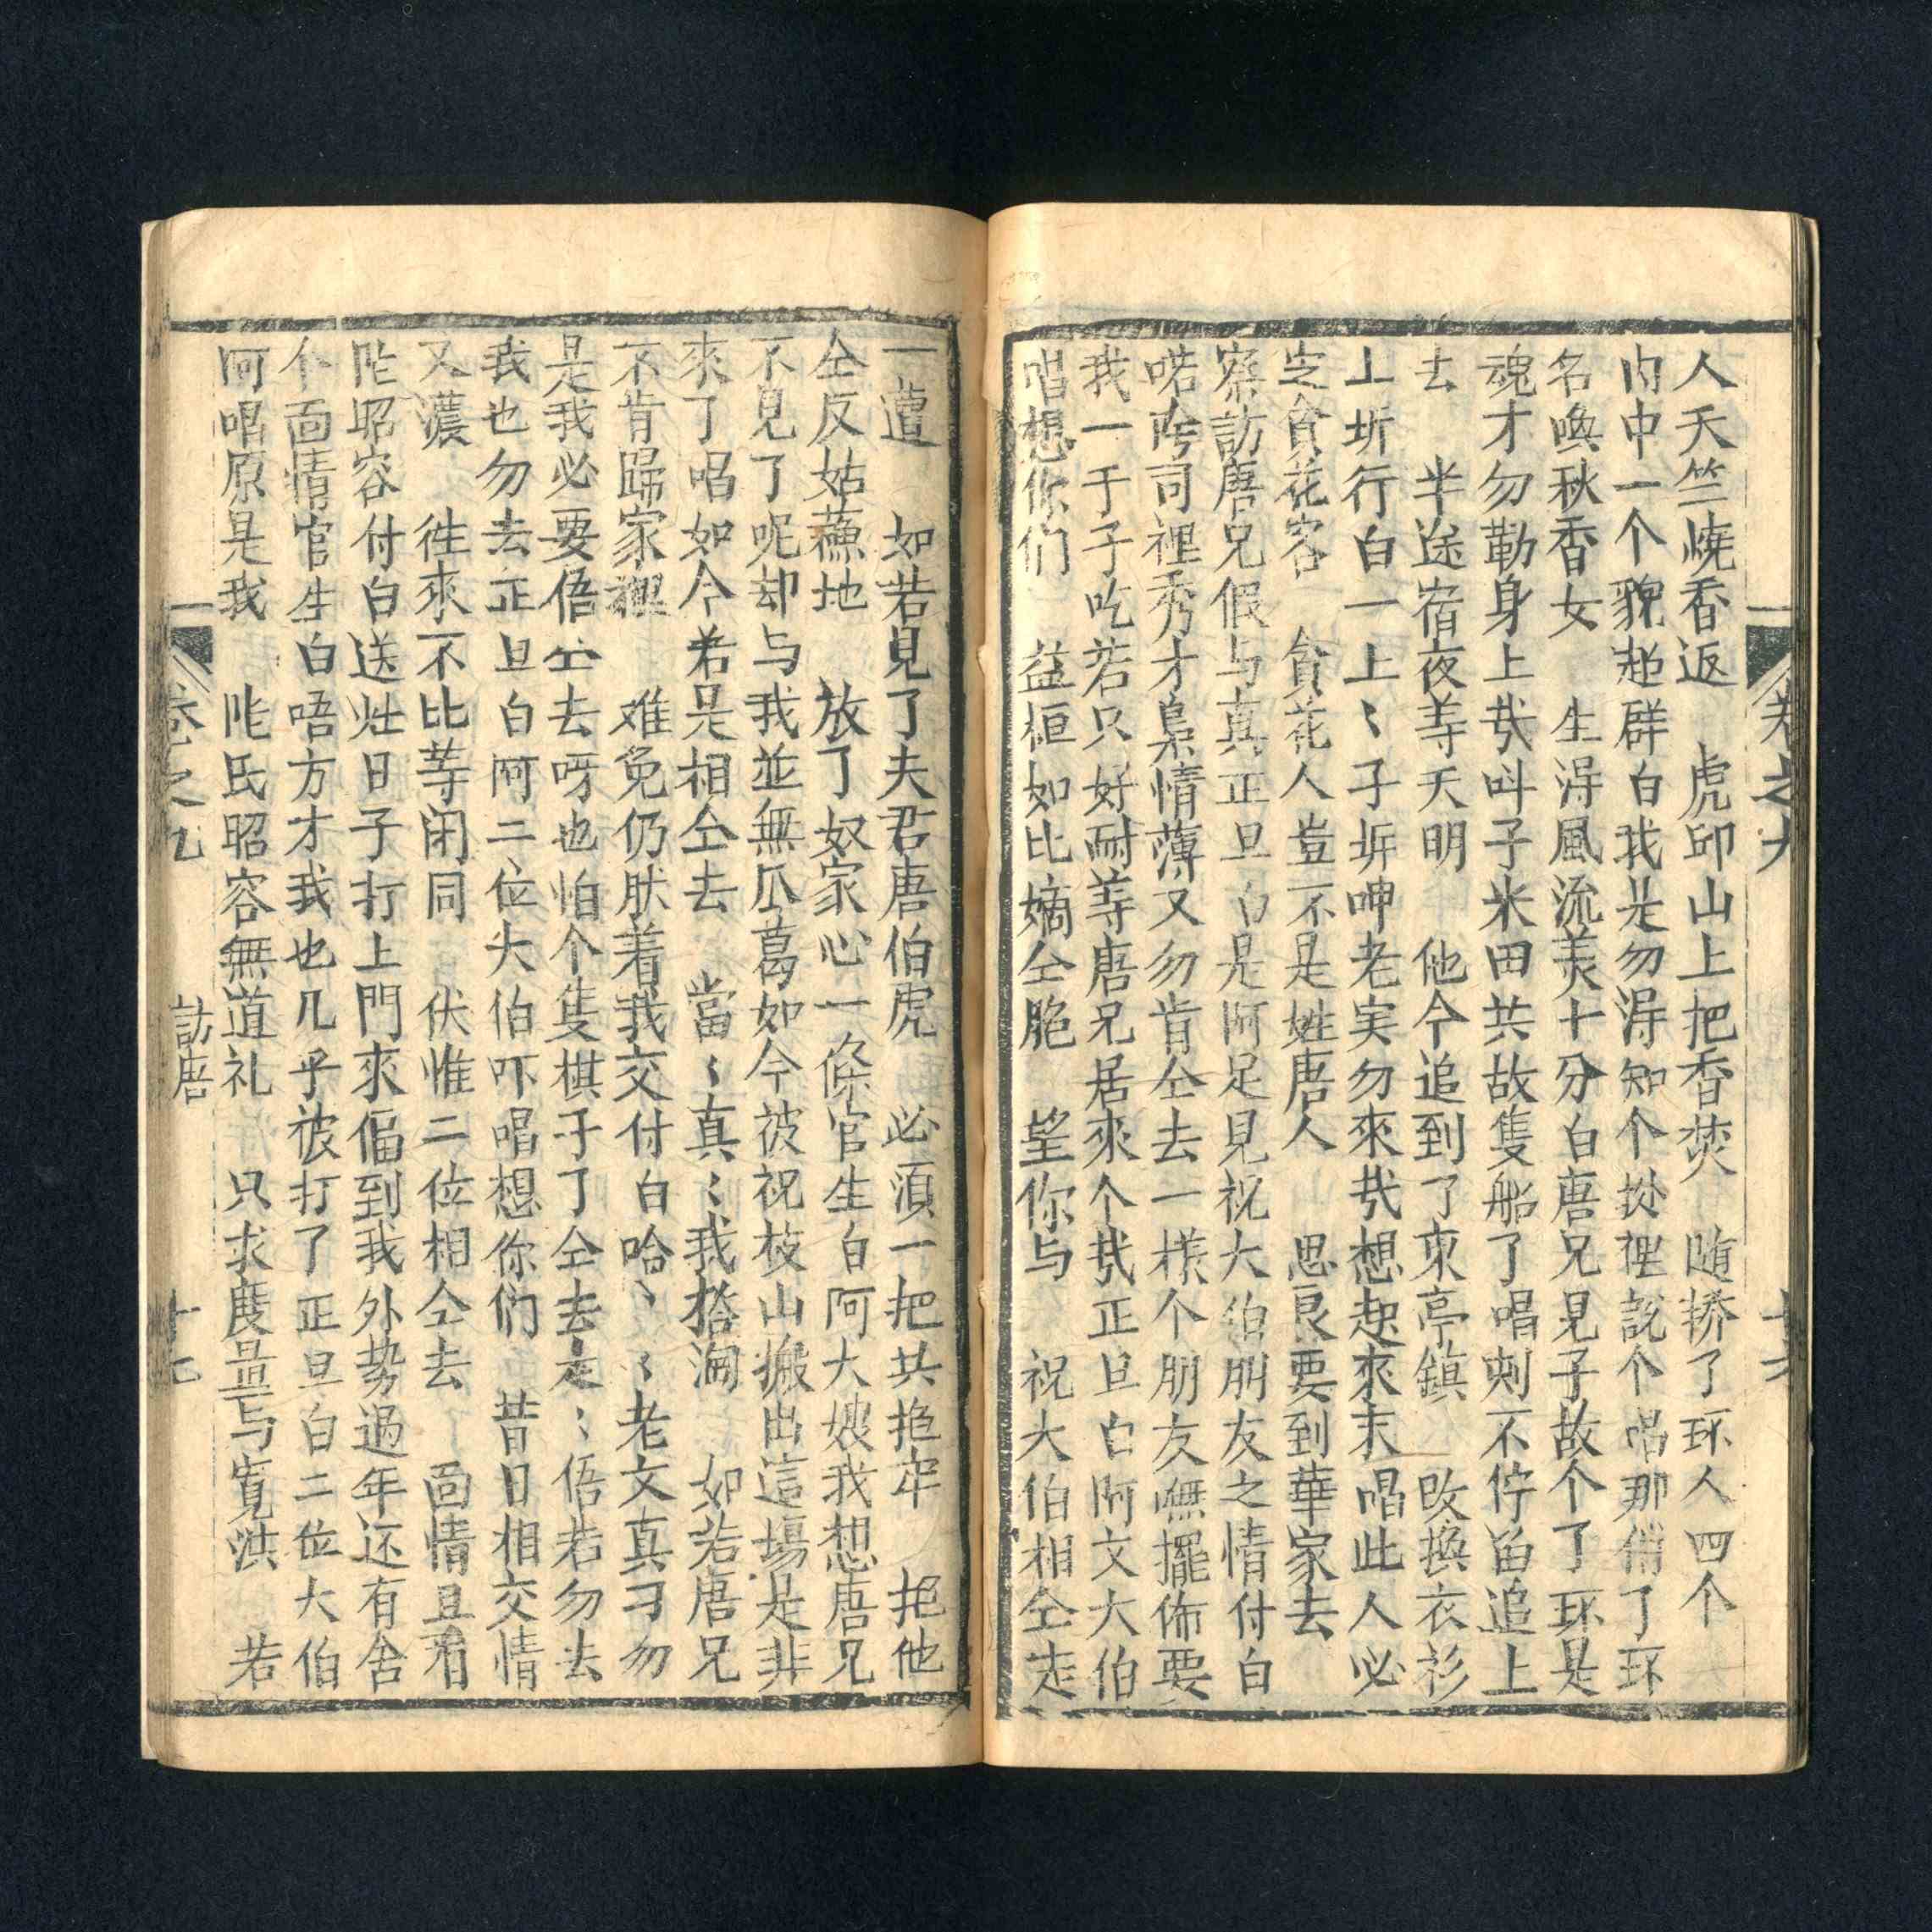 人天竺燒香返　虎邱山上把香焚　随轎了环人四个
内中一个貌超群白我是勿淂知个㧱裡說个唱那俏了环
名喚秋香女　生淂風流美十分白唐兄見子故个了环是
魂才勿勒身上哉呌子米田共故隻船了唱刺不佇畄追上
去　半途宿夜等天明　他今追到了東亭鎮　改換衣衫
上圻行白一上〻子圻呻老実勿來哉想起來末唱此人必
定貪花客　貪花人豈不是姓唐人　思良要到華家去
察訪唐兄假与真正旦白是阿足見祝大伯朋友之情付白
喏阿司裡秀才梟情薄又勿肯仝去一樣个朋友無擺佈要
我一于子吃若只好耐等唐兄居來个哉正旦白阿文大伯
唱想你们　益桓如比嫡仝胞　望你与　祝大伯相仝走
卷之九
十六
一遭　如若見了夫君唐伯虎　必須一把共抱牢　抱他
仝反姑蘓地　放了奴家心一條官生白阿大嫂我想唐兄
不見了呢却与我並無瓜葛如今彼祝枝山搬出這場是非
來了唱如今若是相仝去　當〻真〻我撘淘　如若唐兄
不肯歸家裡　难免仍肰着我交付白哈〻〻老文真刁勿
是我必要俉仝去呀也怕个隻棋子了仝去走〻俉若勿去
我也勿去正旦白阿二位大伯吓唱想你们　昔日相交情
又濃　徃來不比等闲同　伏惟二位相仝去　面情且看
陸昭容付白送灶日子打上門來偪到我外势過年还有舍
个面情官生白唔方才我也几乎被打了正旦白二位大伯
阿唱原是我　陸氏昭容無道礼　只求度量与寬洪　若
卷之九
訪唐
十七